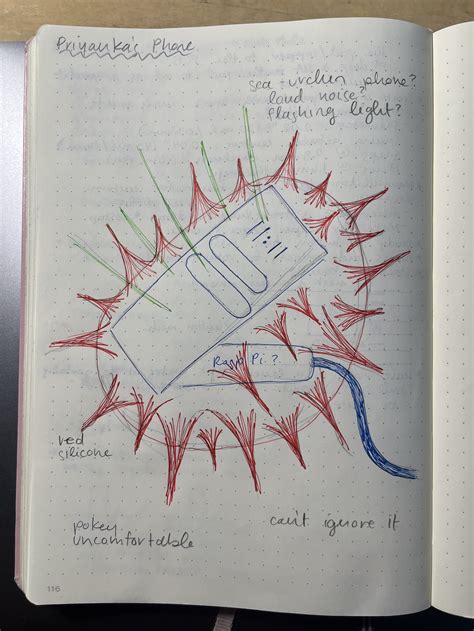 Priyanka's Phone
sea urchin phone?
loud noise?
flashing light?
11:11
Rasp Pi ?
red
silicone
pokey
uncomfortable
can't ignore it
116